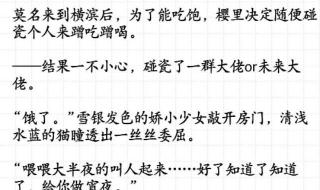 莫名来到横滨后，为了能吃饱，樱里决定随便碰
瓷个人来蹭吃蹭喝。
——结果一不小心，碰瓷了一群大佬or未来大
佬。
“饿了。”雪银发色的娇小少女敲开房门，清浅
水蓝的猫瞳透出一丝丝委屈。
“喂喂大半夜的叫人起来……好了知道了知道
了，给你做宵夜。”